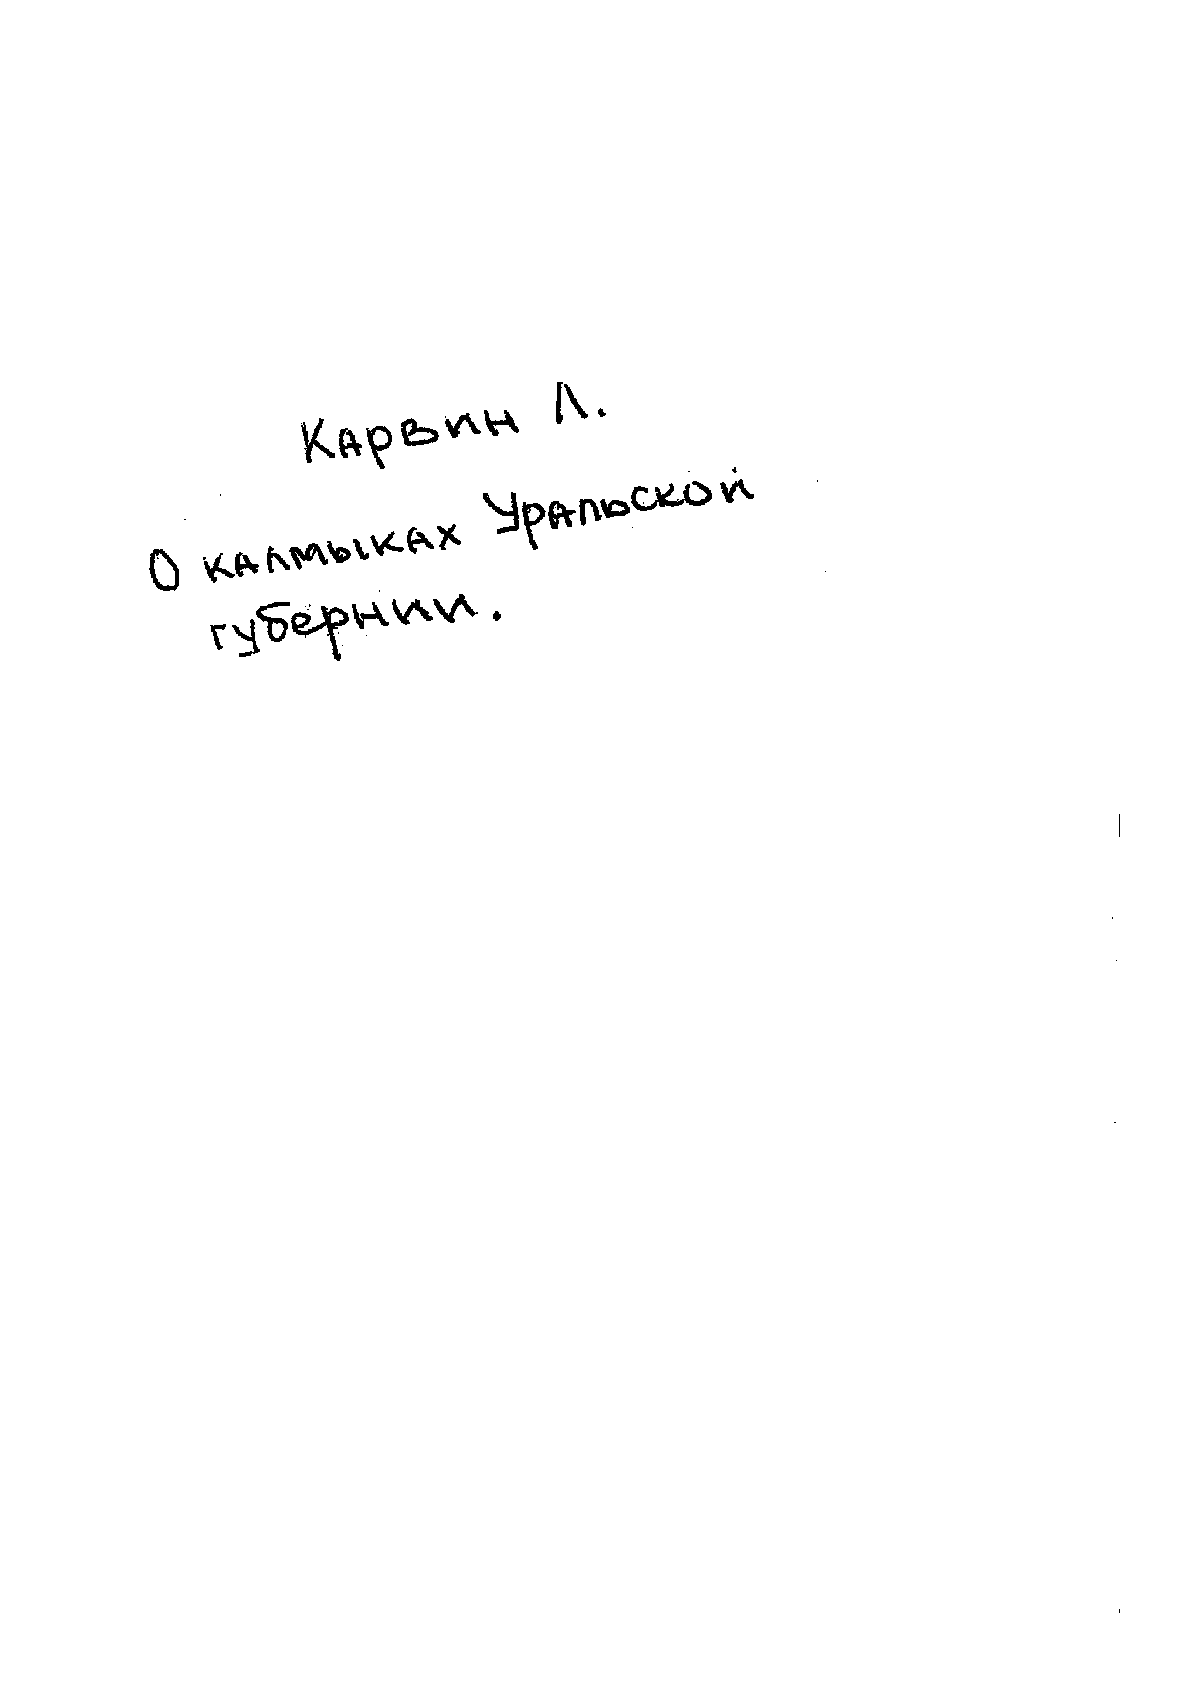 Карвин Л.
О калмыках Уральской
губернии.